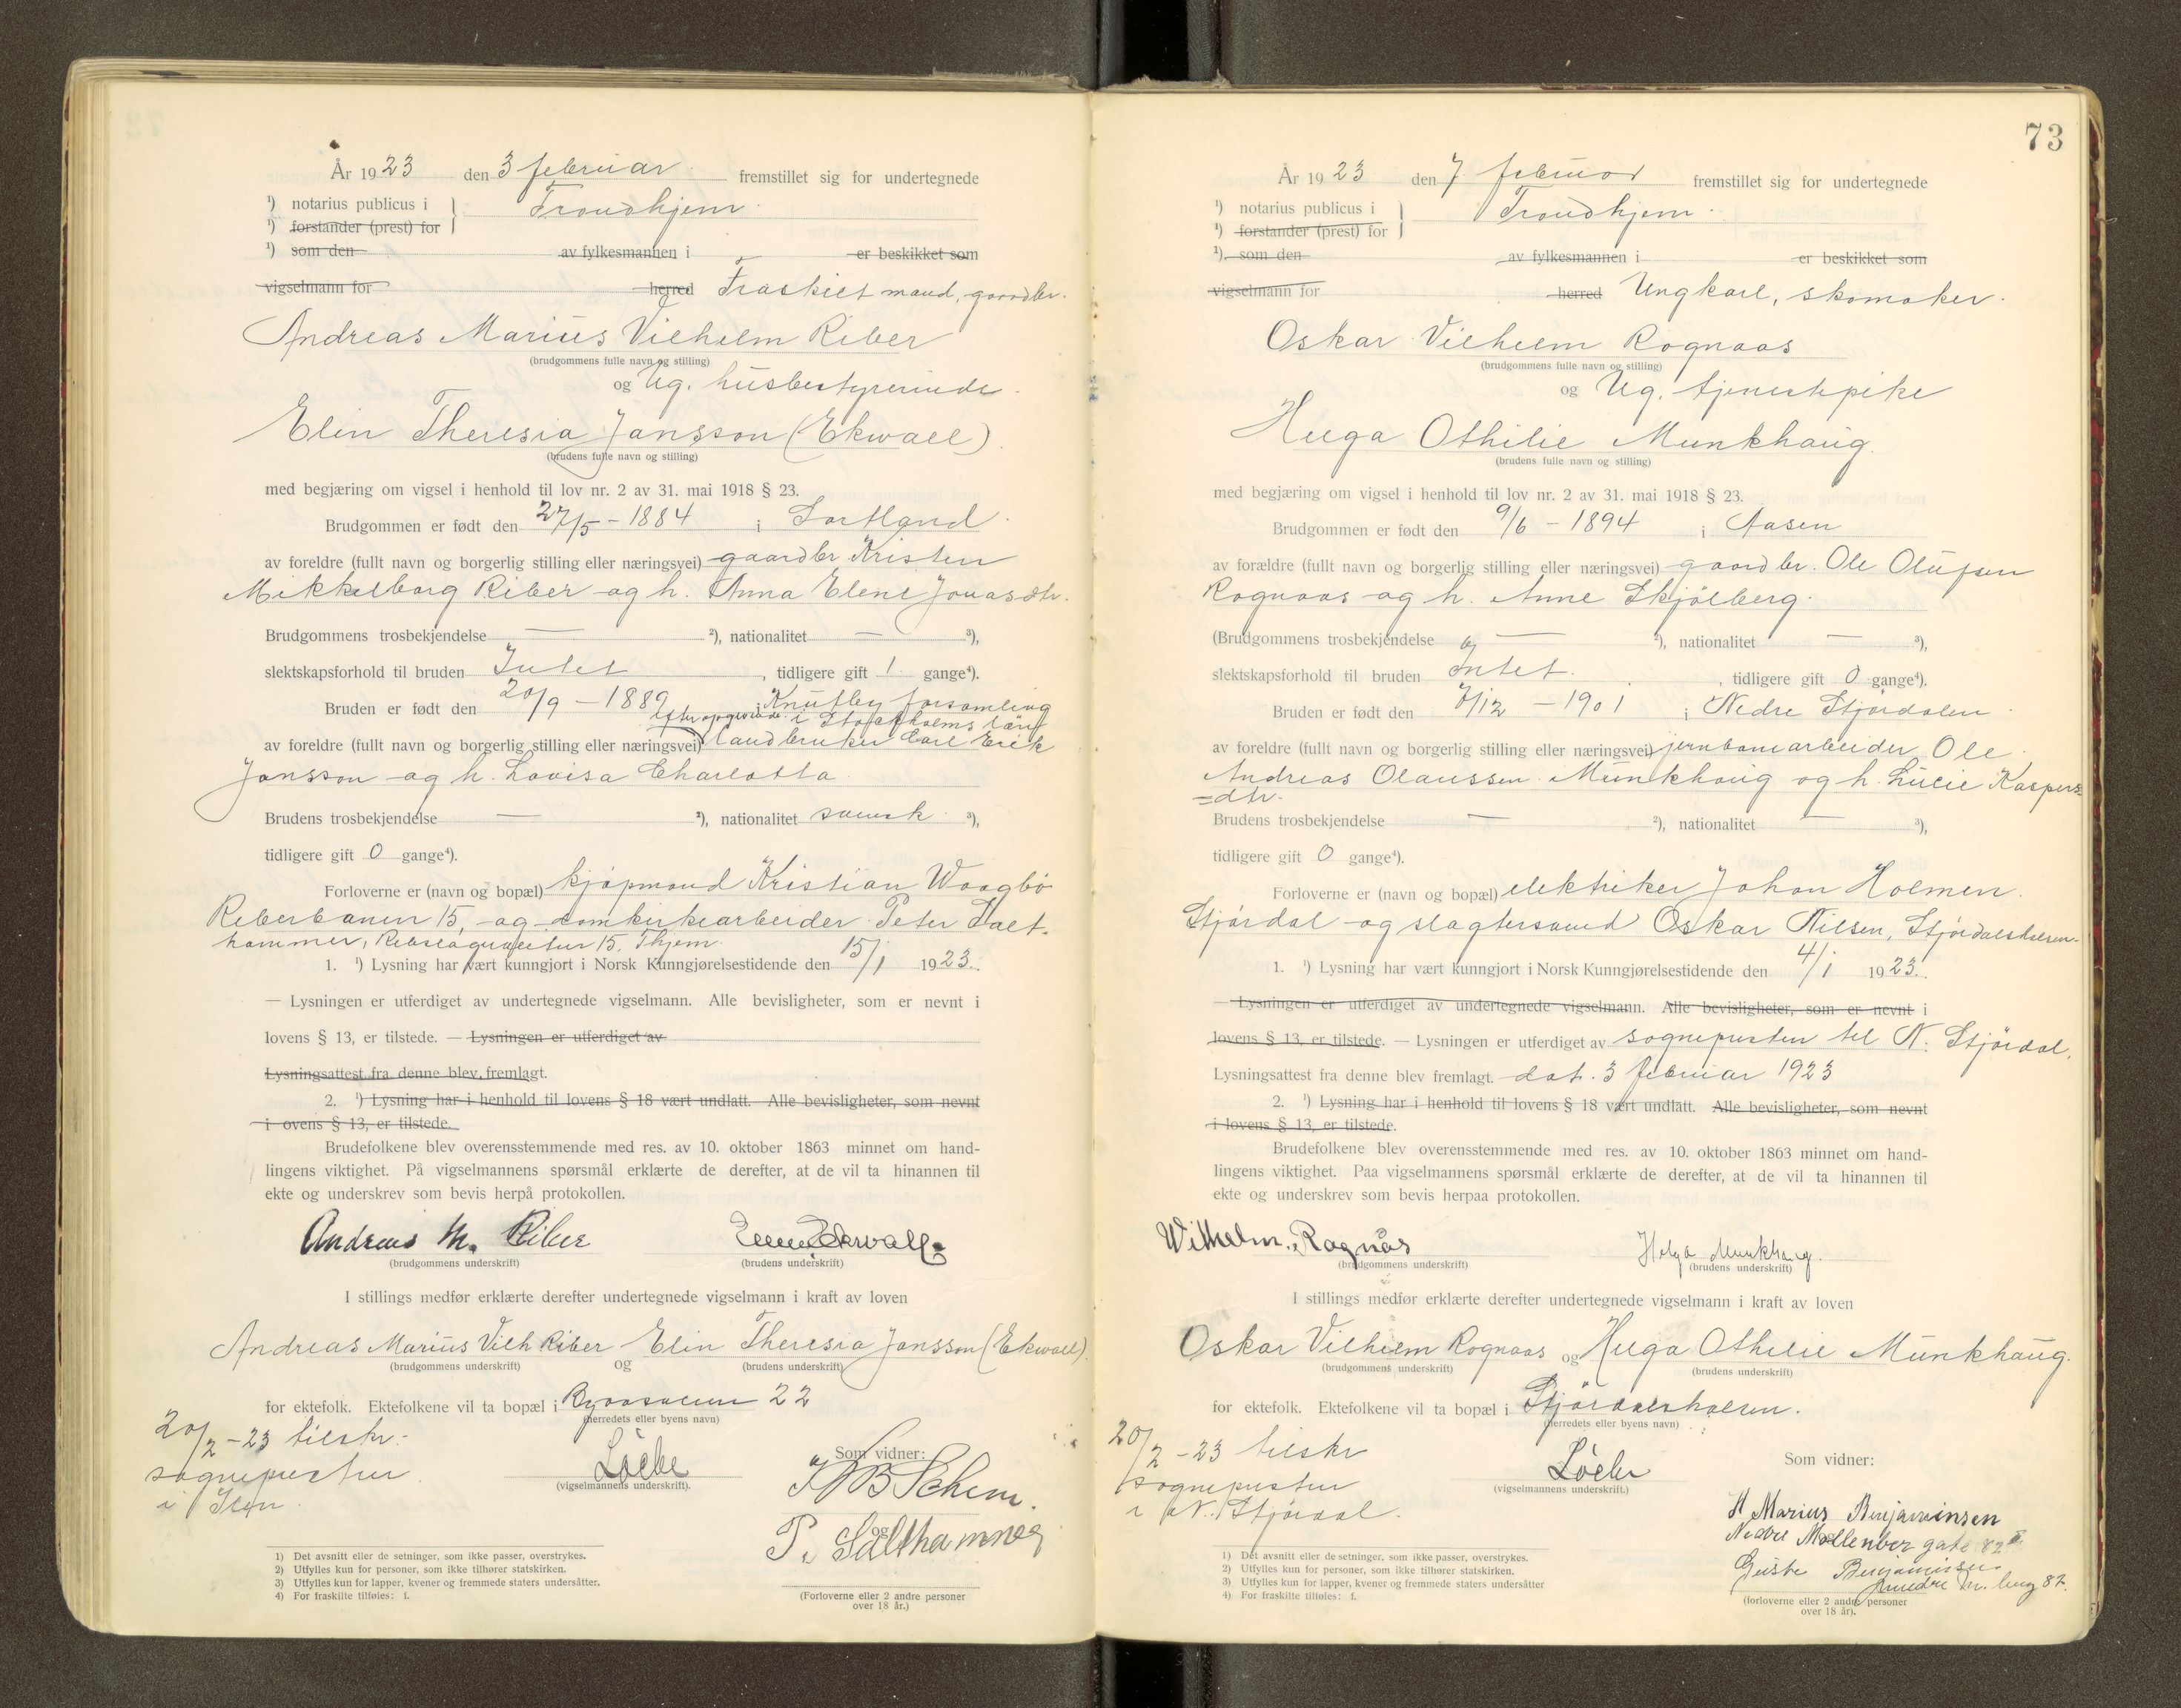 År 1923 den 3 februar fremstillet sig for undertegnede
¹) notarius publicus i } Trondhjem
¹) forstander (prest) for
¹) som den av fylkesmannen i er beskikket som
vigselmann for herred Fraskilt mand, gaardbr.
Andreas Marius Vilhelm Riber
(brudgommens fulle navn og stilling)
og Ug. husbestyrerinde
Elin Theresia Jansson (Ekwall)
(brudens fulle navn og stilling)
med begjæring om vigsel i henhold til lov nr. 2 av 31. mai 1918 § 23.
Brudgommen er født den 27/5 - 1884 i Sortland
av foreldre (fullt navn og borgerlig stilling eller næringsvei) gaardbr Kristen
Mikkelborg Riber og h. Anna Elene Jonasdtr.
Brudgommens trosbekjendelse — ²), nationalitet — ³),
slektskapsforhold til bruden Intet , tidligere gift 1 gange⁴).
Bruden er født den 20/9 - 1889 i Knutby forsamling
efter opgivende i Stockholms län
av foreldre (fullt navn og borgerlig stilling eller næringsvei) landbruker Carl Erik
Jansson og h. Lovisa Charlotta
Brudens trosbekjendelse — ²), nationalitet svensk ³),
tidligere gift 0 gange⁴).
Forloverne er (navn og bopæl) kjøpmand Kristian Waagbø
15, og domkirkearbeider Peter Salt-
hammer, 15, Thjem.
1. ¹) Lysning har vært kunngjort i Norsk Kunngjørelsestidende den 15/1 1923.
— Lysningen er utferdiget av undertegnede vigselmann. Alle bevisligheter, som er nevnt i
lovens § 13, er tilstede. — Lysningen er utferdiget av
Lysningsattest fra denne blev fremlagt.
2. ¹) Lysning har i henhold til lovens § 18 vært undlatt. Alle bevisligheter, som nevnt
i ovens § 13, er tilstede.
Brudefolkene blev overensstemmende med res. av 10. oktober 1863 minnet om hand-
lingens viktighet. På vigselmannens spørsmål erklærte de derefter, at de vil ta hinannen til
ekte og underskrev som bevis herpå protokollen.
Andreas M. Riber Elin Ekwall
(brudgommens underskrift) (brudens underskrift)
I stillings medfør erklærte derefter undertegnede vigselmann i kraft av loven
Andreas Marius Vilh Riber og Elin Theresia Jansson (Ekwall).
(brudgommens underskrift) (brudens underskrift)
for ektefolk. Ektefolkene vil ta bopæl i Byaasveien 22
(herredets eller byens navn)
20/2 - 23 tilskr.
sognepresten
i Ilen.
Løche
(vigselmannens underskrift).
Som vidner:
Schem.
og
P. Salthammer
(Forloverne eller 2 andre personer
over 18 år.)
1) Det avsnitt eller de setninger, som ikke passer, overstrykes.
2) Utfylles kun for personer, som ikke tilhører statskirken.
3) Utfylles kun for lapper, kvener og fremmede staters undersåtter.
4) For fraskilte tilføies: f.
73
År 1923 den 7 februar fremstillet sig for undertegnede
¹) notarius publicus i } Trondhjem
¹) forstander (prest) for
¹) som den av fylkesmannen i er beskikket som
vigselmann for herred Ungkarl, skomaker.
Oskar Vilhelm Rognaas
(brudgommens fulle navn og stilling)
og Ug. tjenestepike
Helga Othilie Munkhaug.
(brudens fulle navn og stilling)
med begjæring om vigsel i henhold til lov nr. 2 av 31. mai 1918 § 23.
Brudgommen er født den 9/6 - 1894 i Aasen
av forældre (fullt navn og borgerlig stilling eller næringsvei) gaardbr. Ole Olufsen
Rognaas og h. Anne Skjølberg.
(Brudgommens trosbekjendelse — ²), nationalitet — ³),
slektskapsforhold til bruden Intet. , tidligere gift 0 gange⁴).
Bruden er født den 7/12 - 1901 i Nedre Stjørdalen
av foreldre (fullt navn og borgerlig stilling eller næringsvei) jernbanearbeider Ole
Andreas Olaussen Munkhaug og h. Lucie Kaspers=
=dtr.
Brudens trosbekjendelse — ²), nationalitet — ³),
tidligere gift 0 gange⁴).
Forloverne er (navn og bopæl) elektriker Johan Holmen.
Stjørdal og slagtersvend Oskar Nilsen, Stjørdalshalsen.
1. ¹) Lysning har vært kunngjort i Norsk Kunngjørelsestidende den 4/1 1923.
— Lysningen er utferdiget av undertegnede vigselmann. Alle bevisligheter, som er nevnt i
lovens § 13, er tilstede. — Lysningen er utferdiget av sognepresten til N. Stjørdal.
Lysningsattest fra denne blev fremlagt. dat. 3 februar 1923
2. ¹) Lysning har i henhold til lovens § 18 vært undlatt. Alle bevisligheter, som nevnt
i lovens § 13, er tilstede.
Brudefolkene blev overensstemmende med res. av 10. oktober 1863 minnet om hand-
lingens viktighet. Paa vigselmannens spørsmål erklærte de derefter, at de vil ta hinannen til
ekte og underskrev som bevis herpaa protokollen.
Wilhelm. Rognås Helga Munkhaug.
(brudgommens underskrift) (brudens underskrift)
I stillings medfør erklærte derefter undertegnede vigselmann i kraft av loven
Oskar Vilhelm Rognaas og Helga Othilie Munkhaug.
(brudgommens underskrift) (brudens underskrift)
for ektefolk. Ektefolkene vil ta bopæl i Stjørdalshalsen.
(herredets eller byens navn)
20/2 - 23 tilskr
sognepresten
i N. Stjørdal.
Løchr
(vigselmannens underskrift.)
Som vidner:
H Marius Benjaminsen
Nedre Møllenber gate 82
Benjaminsen
nedre m. berg 82.
(forloverne eller 2 andre personer
over 18 år).
1) Det avsnitt eller de setninger, som ikke passer, overstrykes.
2) Utfylles kun for personer, som ikke tilhører statskirken.
3) Utfylles kun for lapper, kvener og fremmede staters undersåtter
4) For fraskilte tilføies: f.